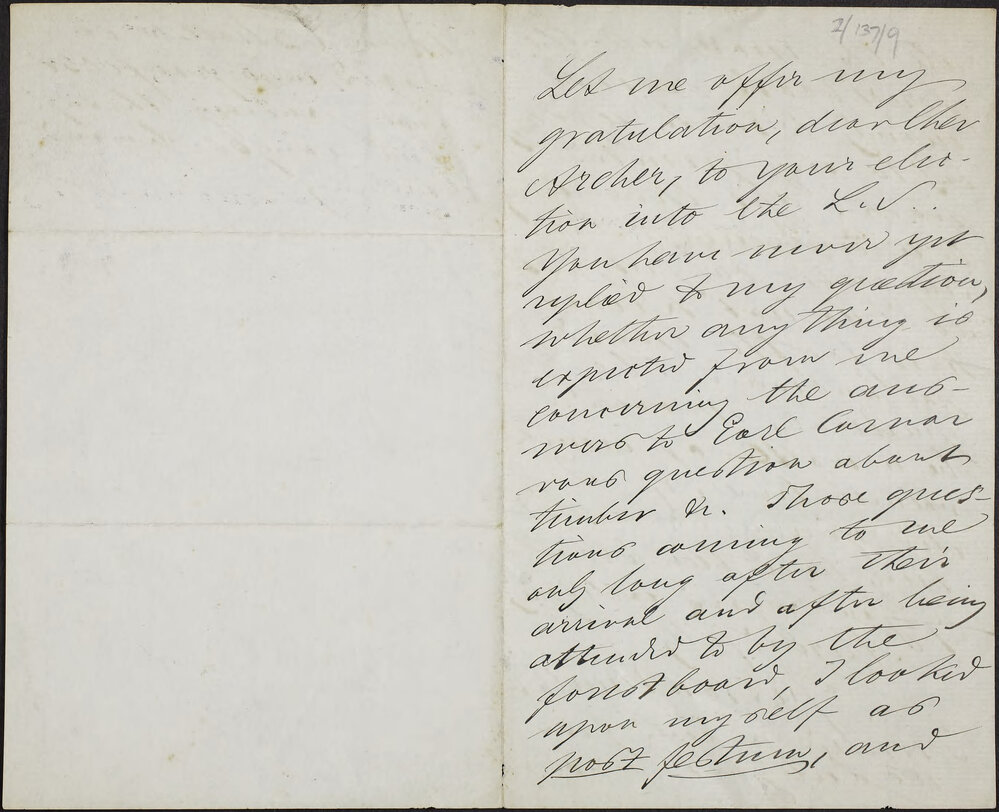 2/137/9
Let me offer my
gratulation, dear Cher
Archer, to your elec-
tion into the L.S..
You have never yet
replied to my quæstion,
whether any thing is
expected from me
concerning the ans-
wers to Earl Carnar
vons question about
timber &c. Those ques-
tions coming to me
only long after their
arrival and after being
attended to by the
forestboard, I looked
upon myself as
post festum, and